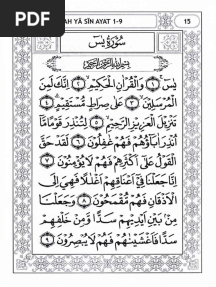 PDF
AH YÂ SÎN AYAT 1-9
15
سُورَةُ يٰسٓ
بِسْمِ اللّٰهِ الرَّحْمٰنِ الرَّحِيْمِ
يٰسٓ ۝١ وَالْقُرْاٰنِ الْحَكِيْمِ ۝٢ اِنَّكَ لَمِنَ
الْمُرْسَلِيْنَ ۝٣ عَلٰى صِرَاطٍ مُّسْتَقِيْمٍ ۝٤
تَنْزِيْلَ الْعَزِيْزِ الرَّحِيْمِ ۝٥ لِتُنْذِرَ قَوْمًا مَّآ
اُنْذِرَ اٰبَآؤُهُمْ فَهُمْ غٰفِلُوْنَ ۝٦ لَقَدْ حَقَّ
الْقَوْلُ عَلٰٓى اَكْثَرِهِمْ فَهُمْ لَا يُؤْمِنُوْنَ ۝٧
اِنَّا جَعَلْنَا فِيْٓ اَعْنَاقِهِمْ اَغْلٰلًا فَهِيَ اِلَى
الْاَذْقَانِ فَهُمْ مُّقْمَحُوْنَ ۝٨ وَجَعَلْنَا
مِنْۢ بَيْنِ اَيْدِيْهِمْ سَدًّا وَّمِنْ خَلْفِهِمْ
سَدًّا فَاَغْشَيْنٰهُمْ فَهُمْ لَا يُبْصِرُوْنَ ۝٩